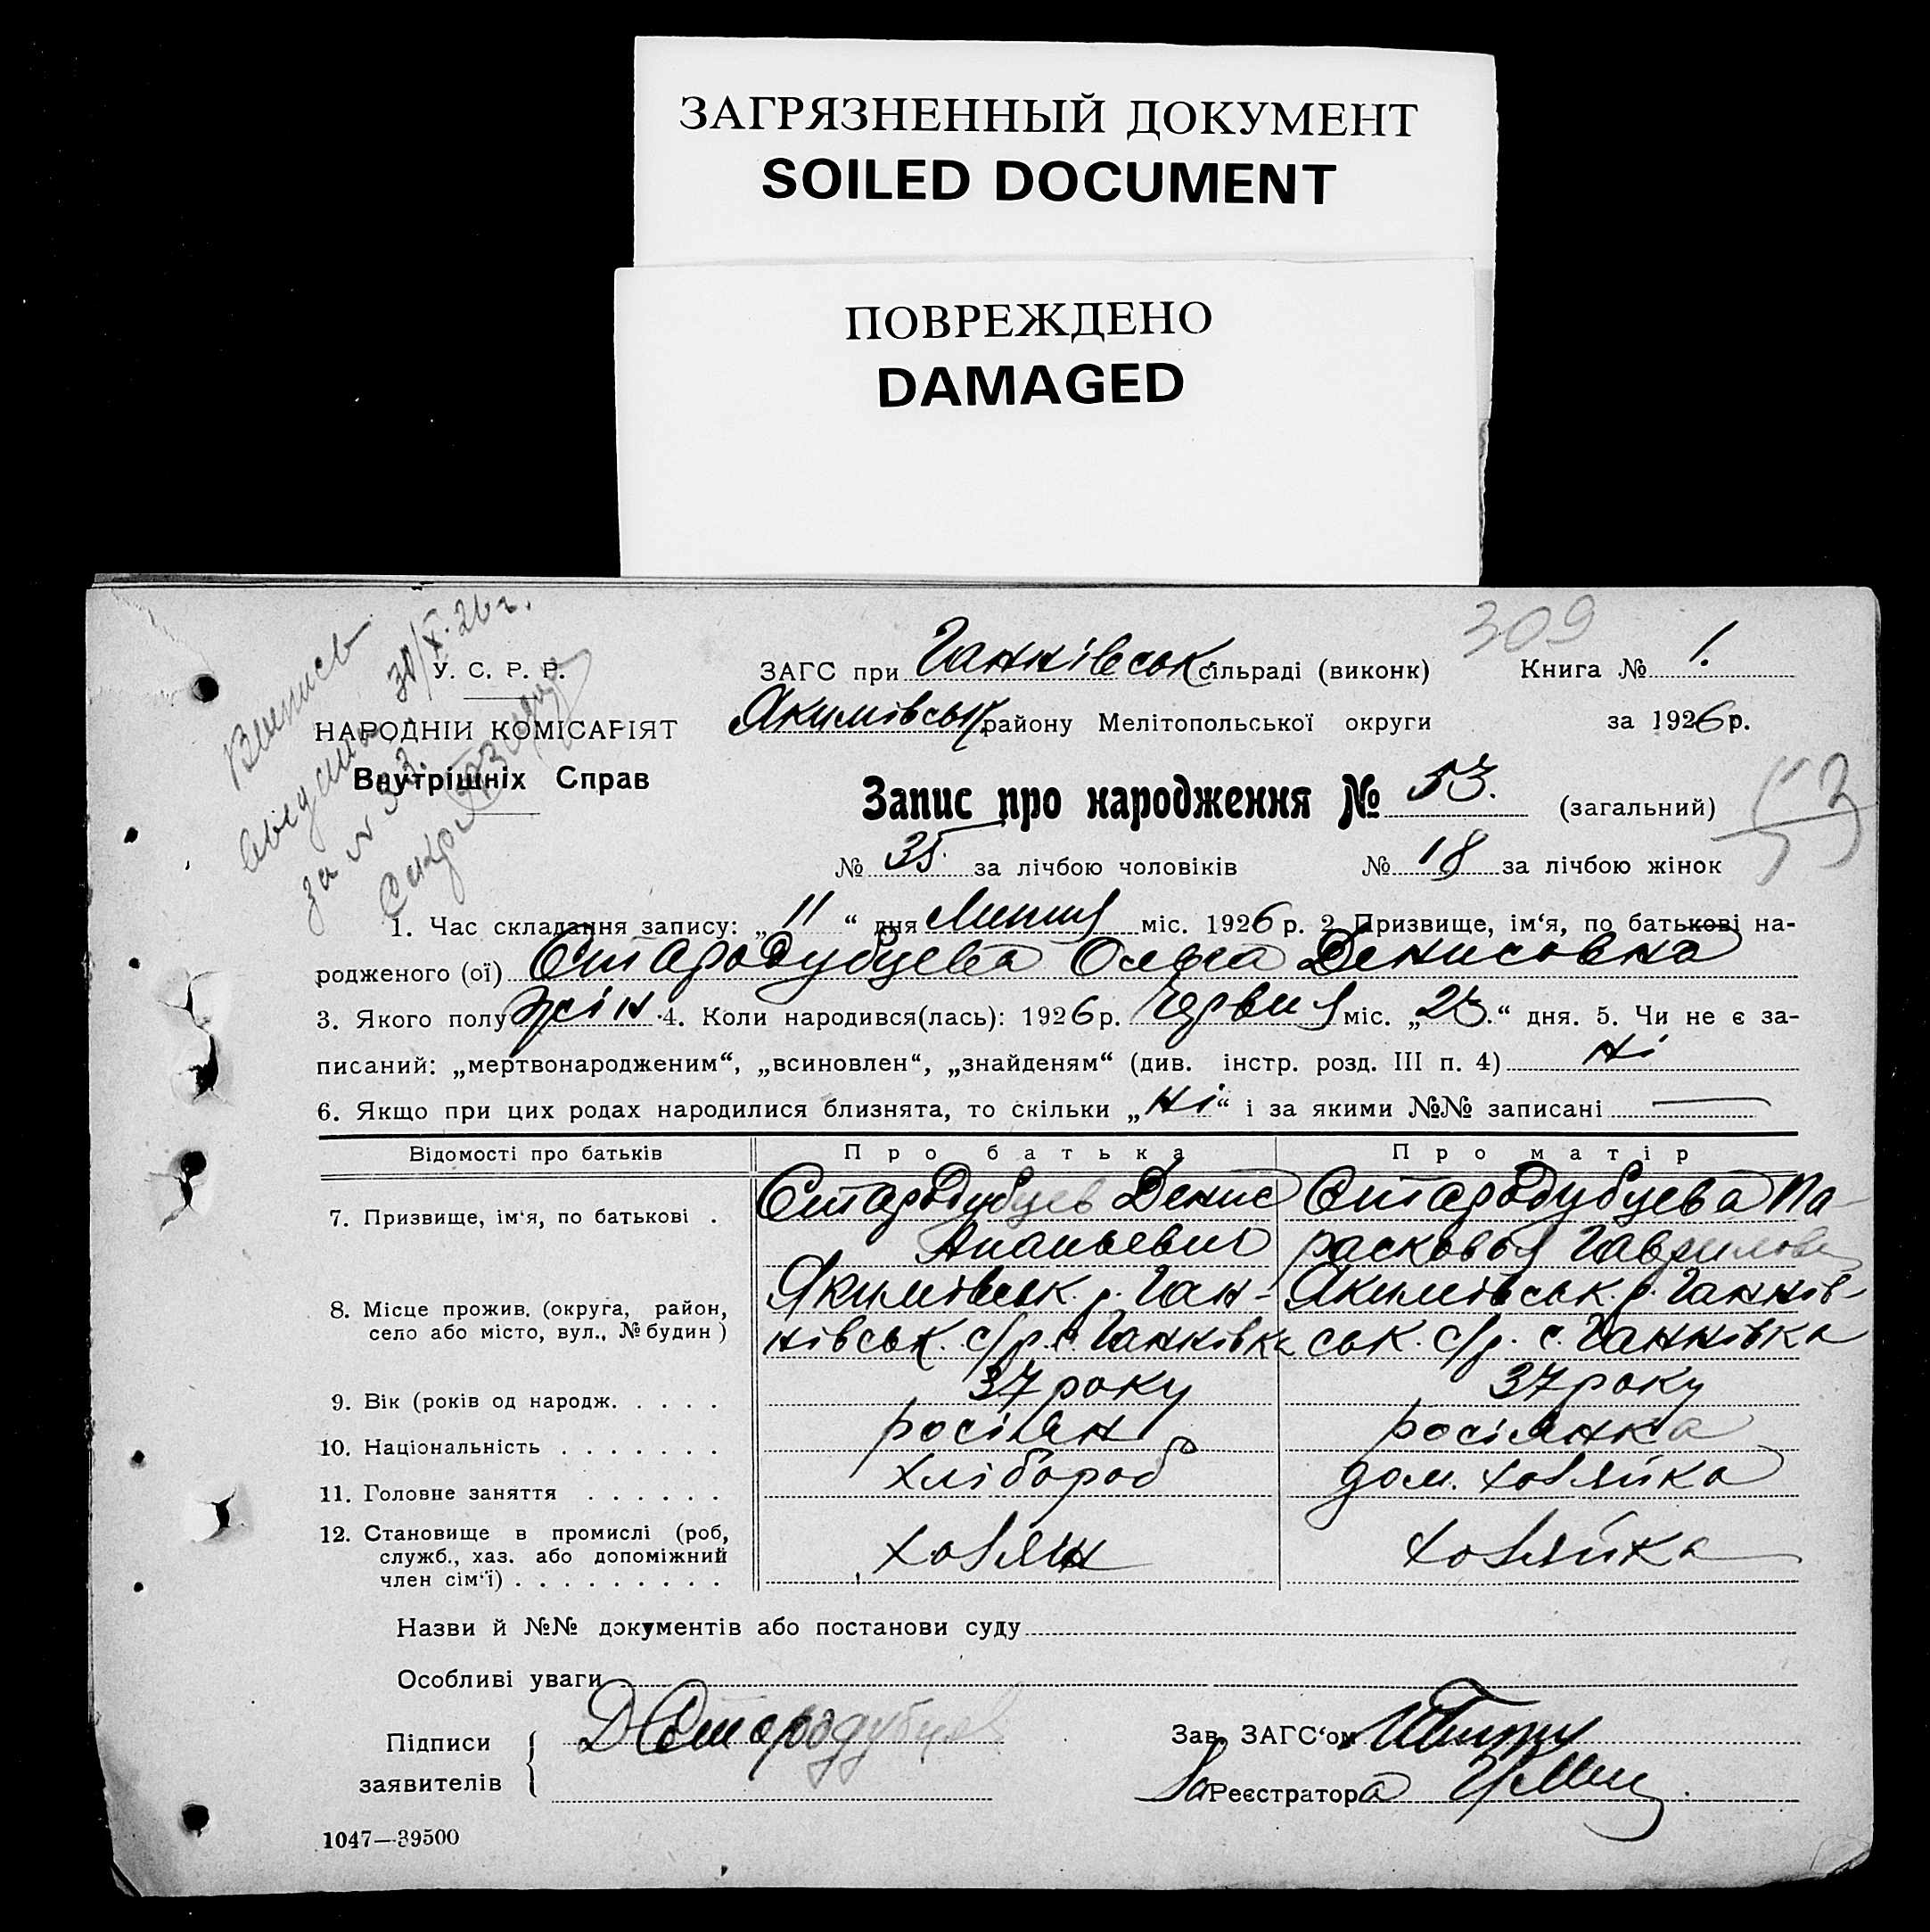 ЗАГРЯЗНЕННЫЙ ДОКУМЕНТ
SOILED DOCUMENT
ПОВРЕЖДЕНО
DAMAGED
309
30/X 26 г.
за №
У. С. Р. Р.
НАРОДНІЙ КОМІСАРІЯТ
Внутрішніх Справ
ЗАГС при Ганнівськ сільраді (виконк) Книга № 1.
Якимівськ. району Мелітопольської округи за 1926 р.
Запис про народження № 53. (загальний)
53
№ 35. за лічбою чоловіків № 18 за лічбою жінок
1. Час складання запису: „11“ дня Липня міс. 1926 р. 2. Призвище, ім‘я, по батькові на-
родженого (ої) Стародубцева Ольга Денисовна
3. Якого полу жін. 4. Коли народився(лась): 1926 р. Червня міс. „23.“ дня. 5. Чи не є за-
писаний: „мертвонародженим“, „всиновлен“, „знайденям“ (див. інстр. розд. III п. 4) Ні
6. Якщо при цих родах народилися близнята, то скільки „Ні“ і за якими №№ записані —
Відомості про батьків Про батька Про матір
7. Призвище, ім‘я, по батькові . Стародубцев Денис Стародубцева Па-
Ананьевич расковья Гавриловн
8. Місце прожив. (округа, район, Якимівськ. р. Ган- Якимівськ. р. Ганнів-
село або місто, вул., № будин) нівськ. с/р. с. Ганнівка ськ. с/р. с. Ганнівка
9. Вік (років од народж. . . . . 37 року 37 року
10. Національність . . . . . . . росіян росіянка
11. Головне заняття . . . . . . хлібороб дом. хозяйка
12. Становище в промислі (роб,
служб., хаз. або допоміжний хозяин хозяйка
член сім‘ї) . . . . . . . . .
Назви й №№ документів або постанови суду
Особливі уваги
Підписи Д Стародубцев Зав. ЗАГС‘ом
заявителів За Реєстратора
1047—39500